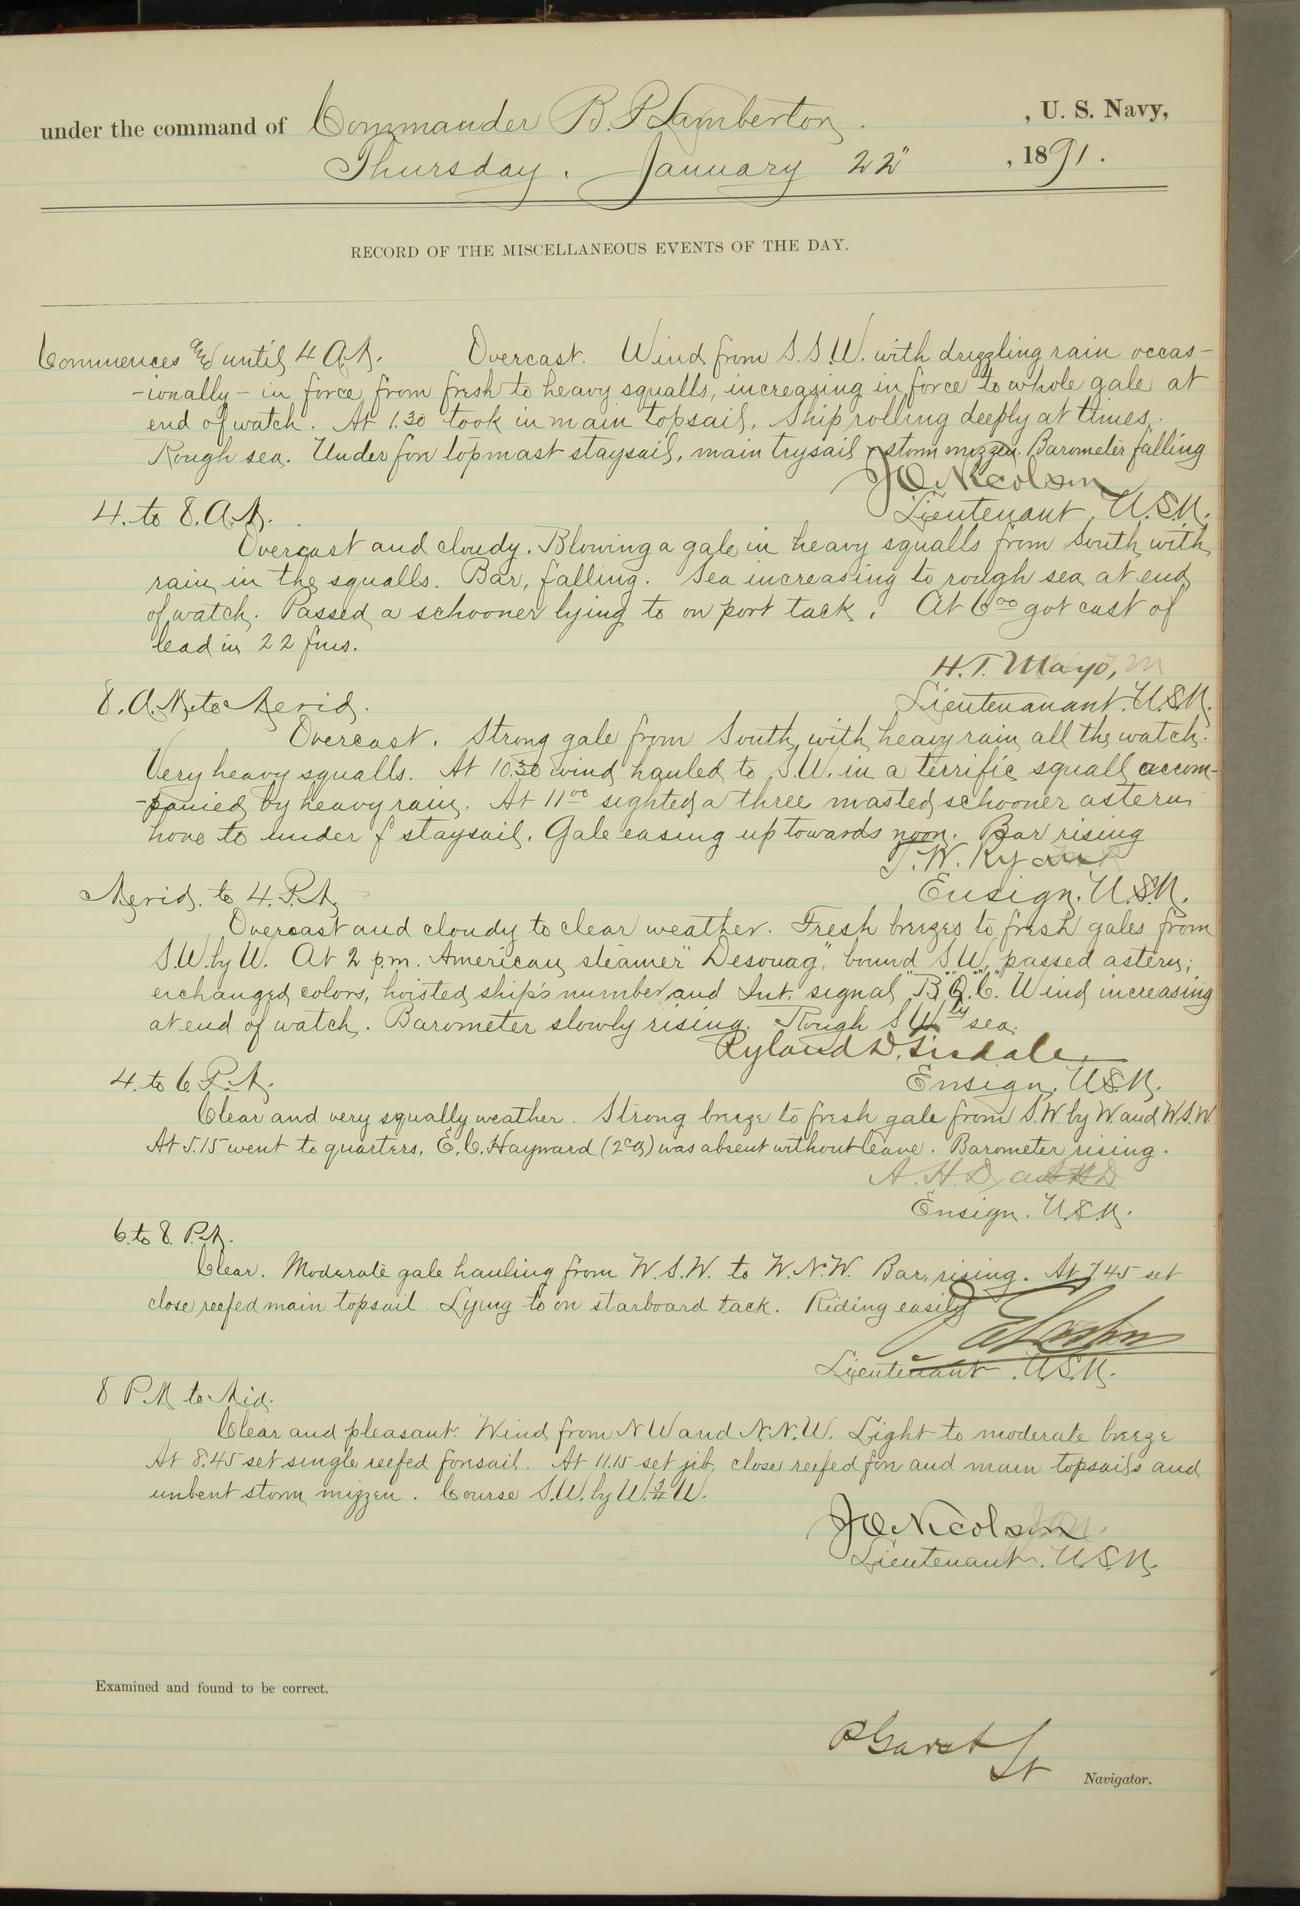 under the command of Commander B. P. Lamberton, U. S. Navy,
Thursday, January 22", 1891.
RECORD OF THE MISCELLANEOUS EVENTS OF THE DAY.
Commences and until 4 A.M. Overcast. Wind from S.S.W. with drizzling rain occas-
-ionally - in force from fresh to heavy squalls, increasing in force to whole gale at
end of watch. At 1.30 took in main topsail. Ship rolling deeply at times.
Rough sea. Under fore topmast staysail, main trysail & storm mizzen. Barometer falling
J O Nicolson
Lieutenant, U.S.N.
4. to 8. A.M.
Overcast and cloudy. Blowing a gale in heavy squalls from South with
rain in the squalls. Bar. falling. Sea increasing to rough sea at end
of watch. Passed a schooner lying to on port tack. At 6 00 got cast of
lead in 22 fms.
H. T. Mayo,
Lieutenanant. U.S.N.
8. A.M. to Merid.
Overcast. Strong gale from South, with heavy rain all the watch.
Very heavy squalls. At 10.30 wind hauled to S.W. in a terrific squall accom-
-panied by heavy rain. At 11 00 sighted a three masted schooner astern
hove to under f staysail. Gale easing up towards noon. Bar rising
T. W. Ryan
Ensign. U.S.N.
Merid. to 4. P.M.
Overcast and cloudy to clear weather. Fresh breezes to fresh gales from
S.W. by W. At 2 p.m. American steamer "Desouag", bound S.W. passed astern;
exchanged colors, hoisted ship's number and Int. signal "B" "Q." "C." Wind increasing
at end of watch. Barometer slowly rising. Rough S W ly sea.
Ryland D. Tisdale
Ensign. U.S.N.
4. to 6 P.M.
Clear and very squally weather. Strong breeze to fresh gale from S.W. by W. and W.S.W.
At 5.15 went to quarters, E. C. Hayward (2 c) was absent without leave. Barometer rising.
A. H. D
Ensign. U.S.N.
6. to 8. P.M.
Clear. Moderate gale hauling from W.S.W. to W.N.W. Bar. rising. At 7 45 set
close reefed main topsail. Lying to on starboard tack. Riding easily
Lieutenant. U.S.N.
8 P.M to Mid.
Clear and pleasant. Wind from NW and N.N.W. Light to moderate breeze
At 8.45 set single reefed foresail. At 11.15 set jib, close reefed fore and main topsails and
unbent storm mizzen. Course S.W. by W. ½ W.
J O Nicolson
Lieutenant. U.S.N.
Examined and found to be correct.
P Garst
Lt Navigator.